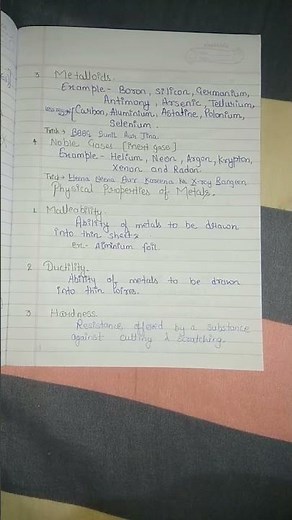 3 Metalloids.
Example - Boron, Silicon, Germanium,
Antimony, Arsenic, Tellurium,
Carbon, Aluminium, Astatine, Polonium,
Selenium.
Trick →
4 Noble Gases [inert gase]
Example - Helium, Neon, Argon, Krypton,
Xenon and Radon.
Trick →
Physical Properties of Metals.
1. Malleability.
Ability of metals to be drawn
into thin sheets
Ex - Aliminium foil.
2 Ductility.
Ability of metals to be drawn
into thin wires.
3 Hardness
Resistance offered by a substance
against cutting & scratching.